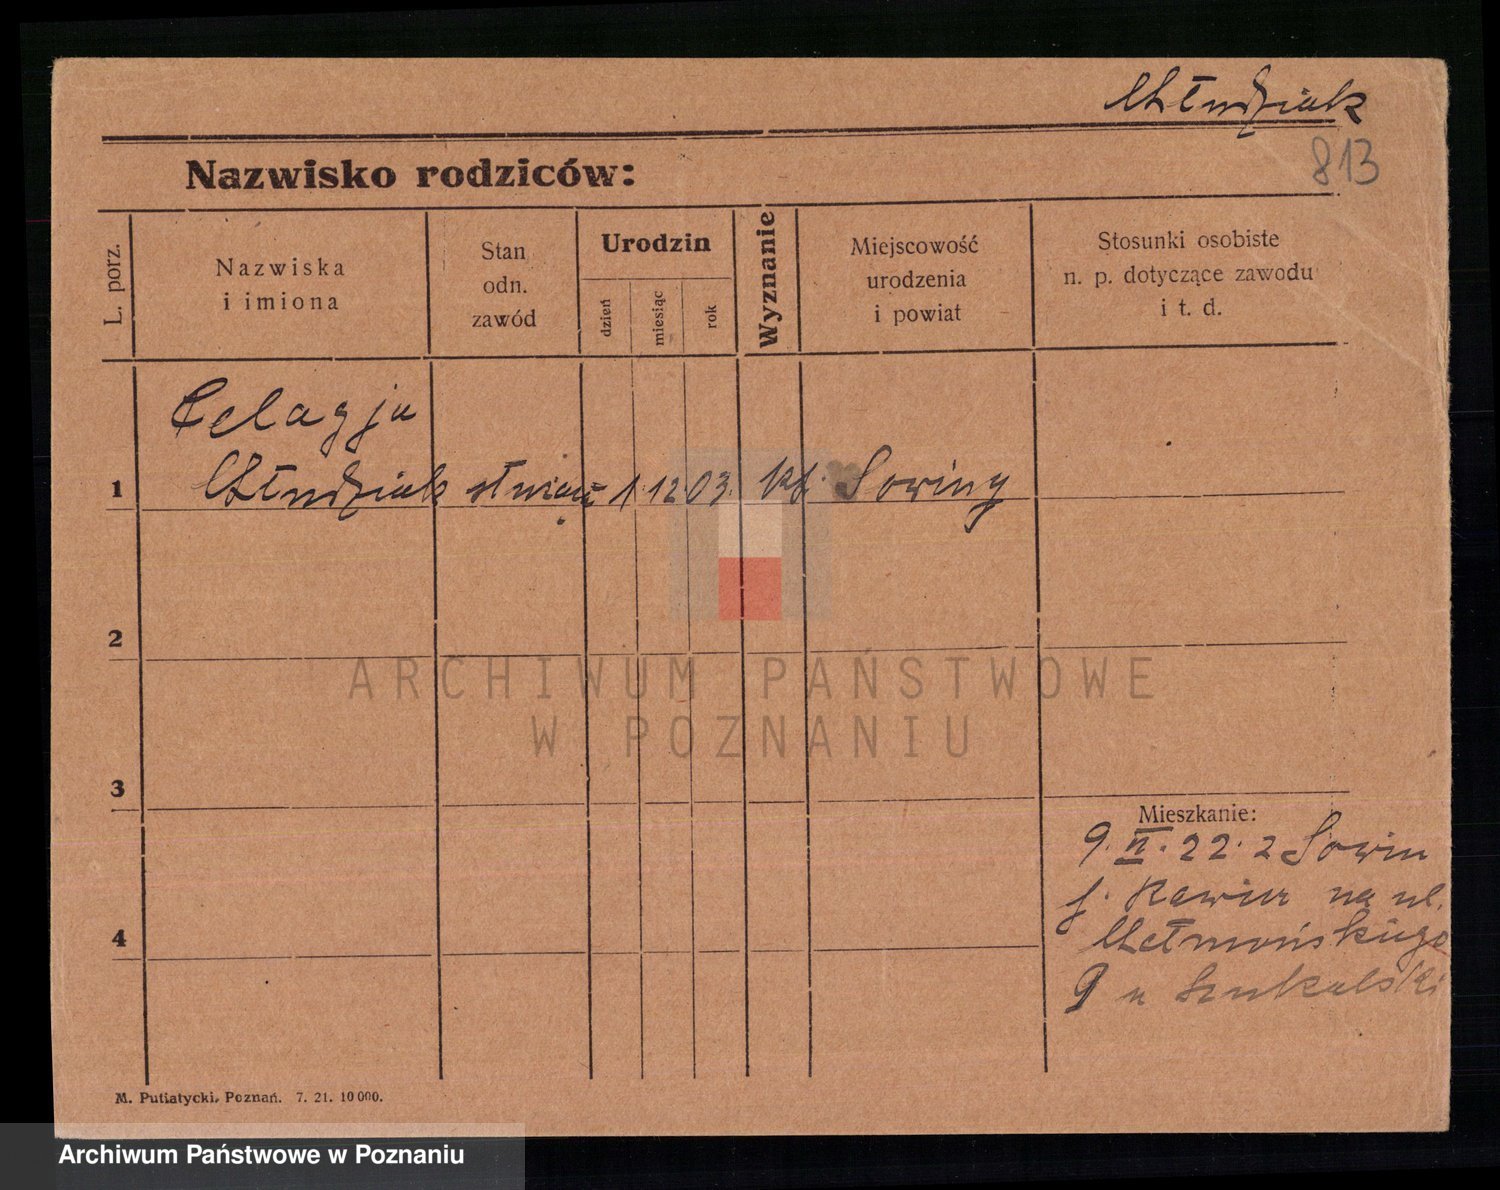 Chłudziak
813
Nazwisko rodziców:
L. porz.
Nazwiska
i imiona
Stan
odn.
zawód
Urodzin
dzień
miesiąc
rok
Wyznanie
Miejscowość
urodzenia
i powiat
Stosunki osobiste
n. p. dotyczące zawodu
i t. d.
Pelagja
1 Chłudziak 1 12 03. kt. Sowiny
2
3
4
Mieszkanie:
9. VI. 22. z Sowin
na ul.
Chełmońskiego
9 u Szukalski
M. Putiatycki, Poznań. 7. 21. 10 000.
ARCHIWUM PAŃSTWOWE
W POZNANIU
Archiwum Państwowe w Poznaniu